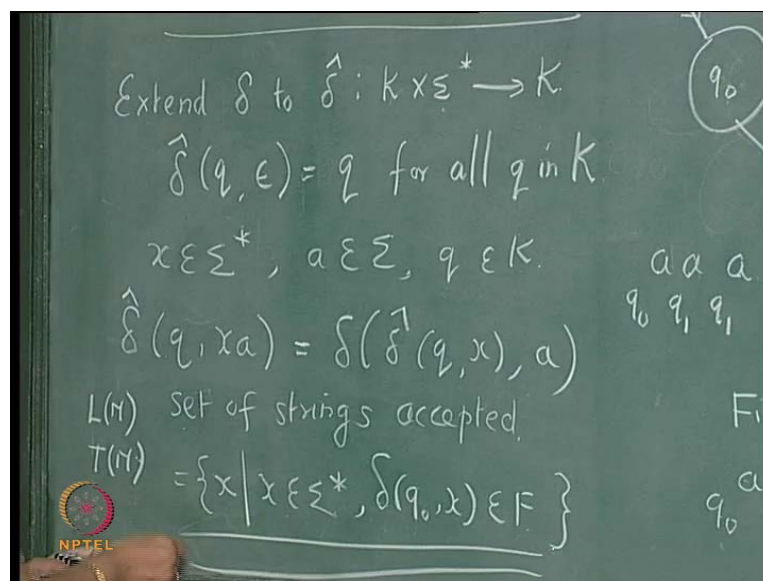 Extend δ to δ̂ : K × Σ* → K.
δ̂(q, ϵ) = q for all q in K.
x ε Σ*, a ε Σ, q ε K.
δ̂(q, xa) = δ(δ̂(q, x), a)
L(M) set of strings accepted.
T(M)
= {x | x ε Σ*, δ(q₀, x) ε F }
q₀
a a a
q₀ q₁ q₁
Fi
a
q₀
NPTEL